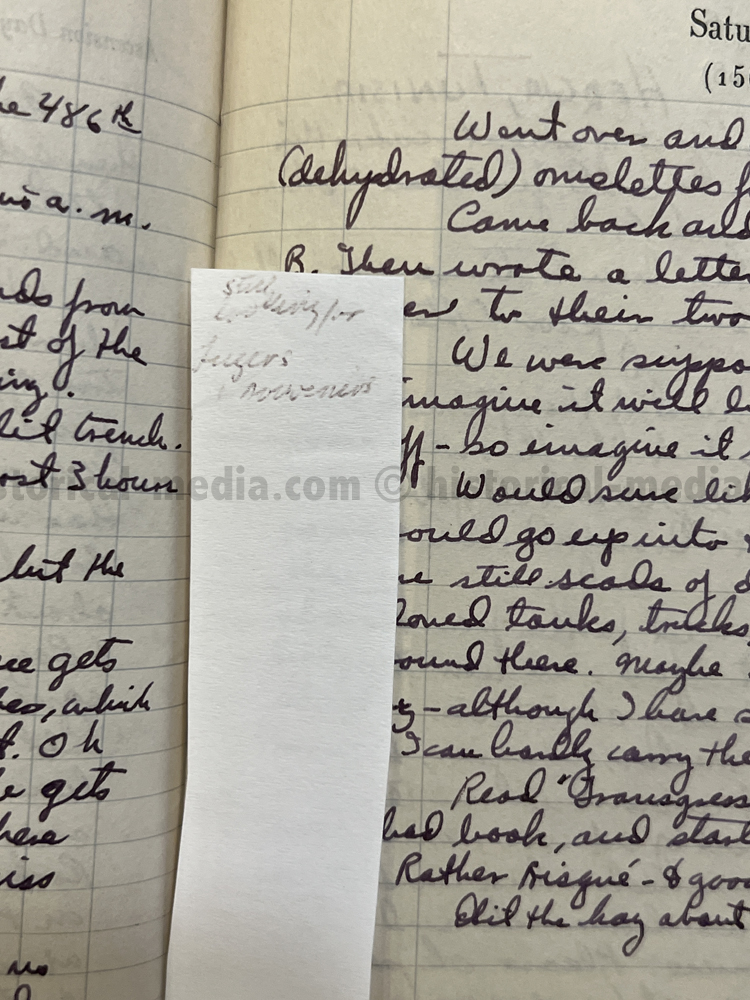 he 486th
a.m.
ds from
st of the
ing.
lit trench.
ost 3 hours
but the
ce gets
hes, which
t. Oh
e gets
here
iss
no
Satu
(15
Went over and
(dehydrated) omelettes f
Came back and
B. Then wrote a letter
er to their two
We were suppo
imagine it will b
ff - so imagine it
Would sure lik
ould go up into
re still scads of d
doned tanks, trucks,
ound there. Maybe
y - although I have s
I can hardly carry the
Read "Transgress
bad book, and start
Rather Risqué - & goo
Hit the hay about
still
looking for
souveniers
historical-media.com © historical-media
Ascension Day